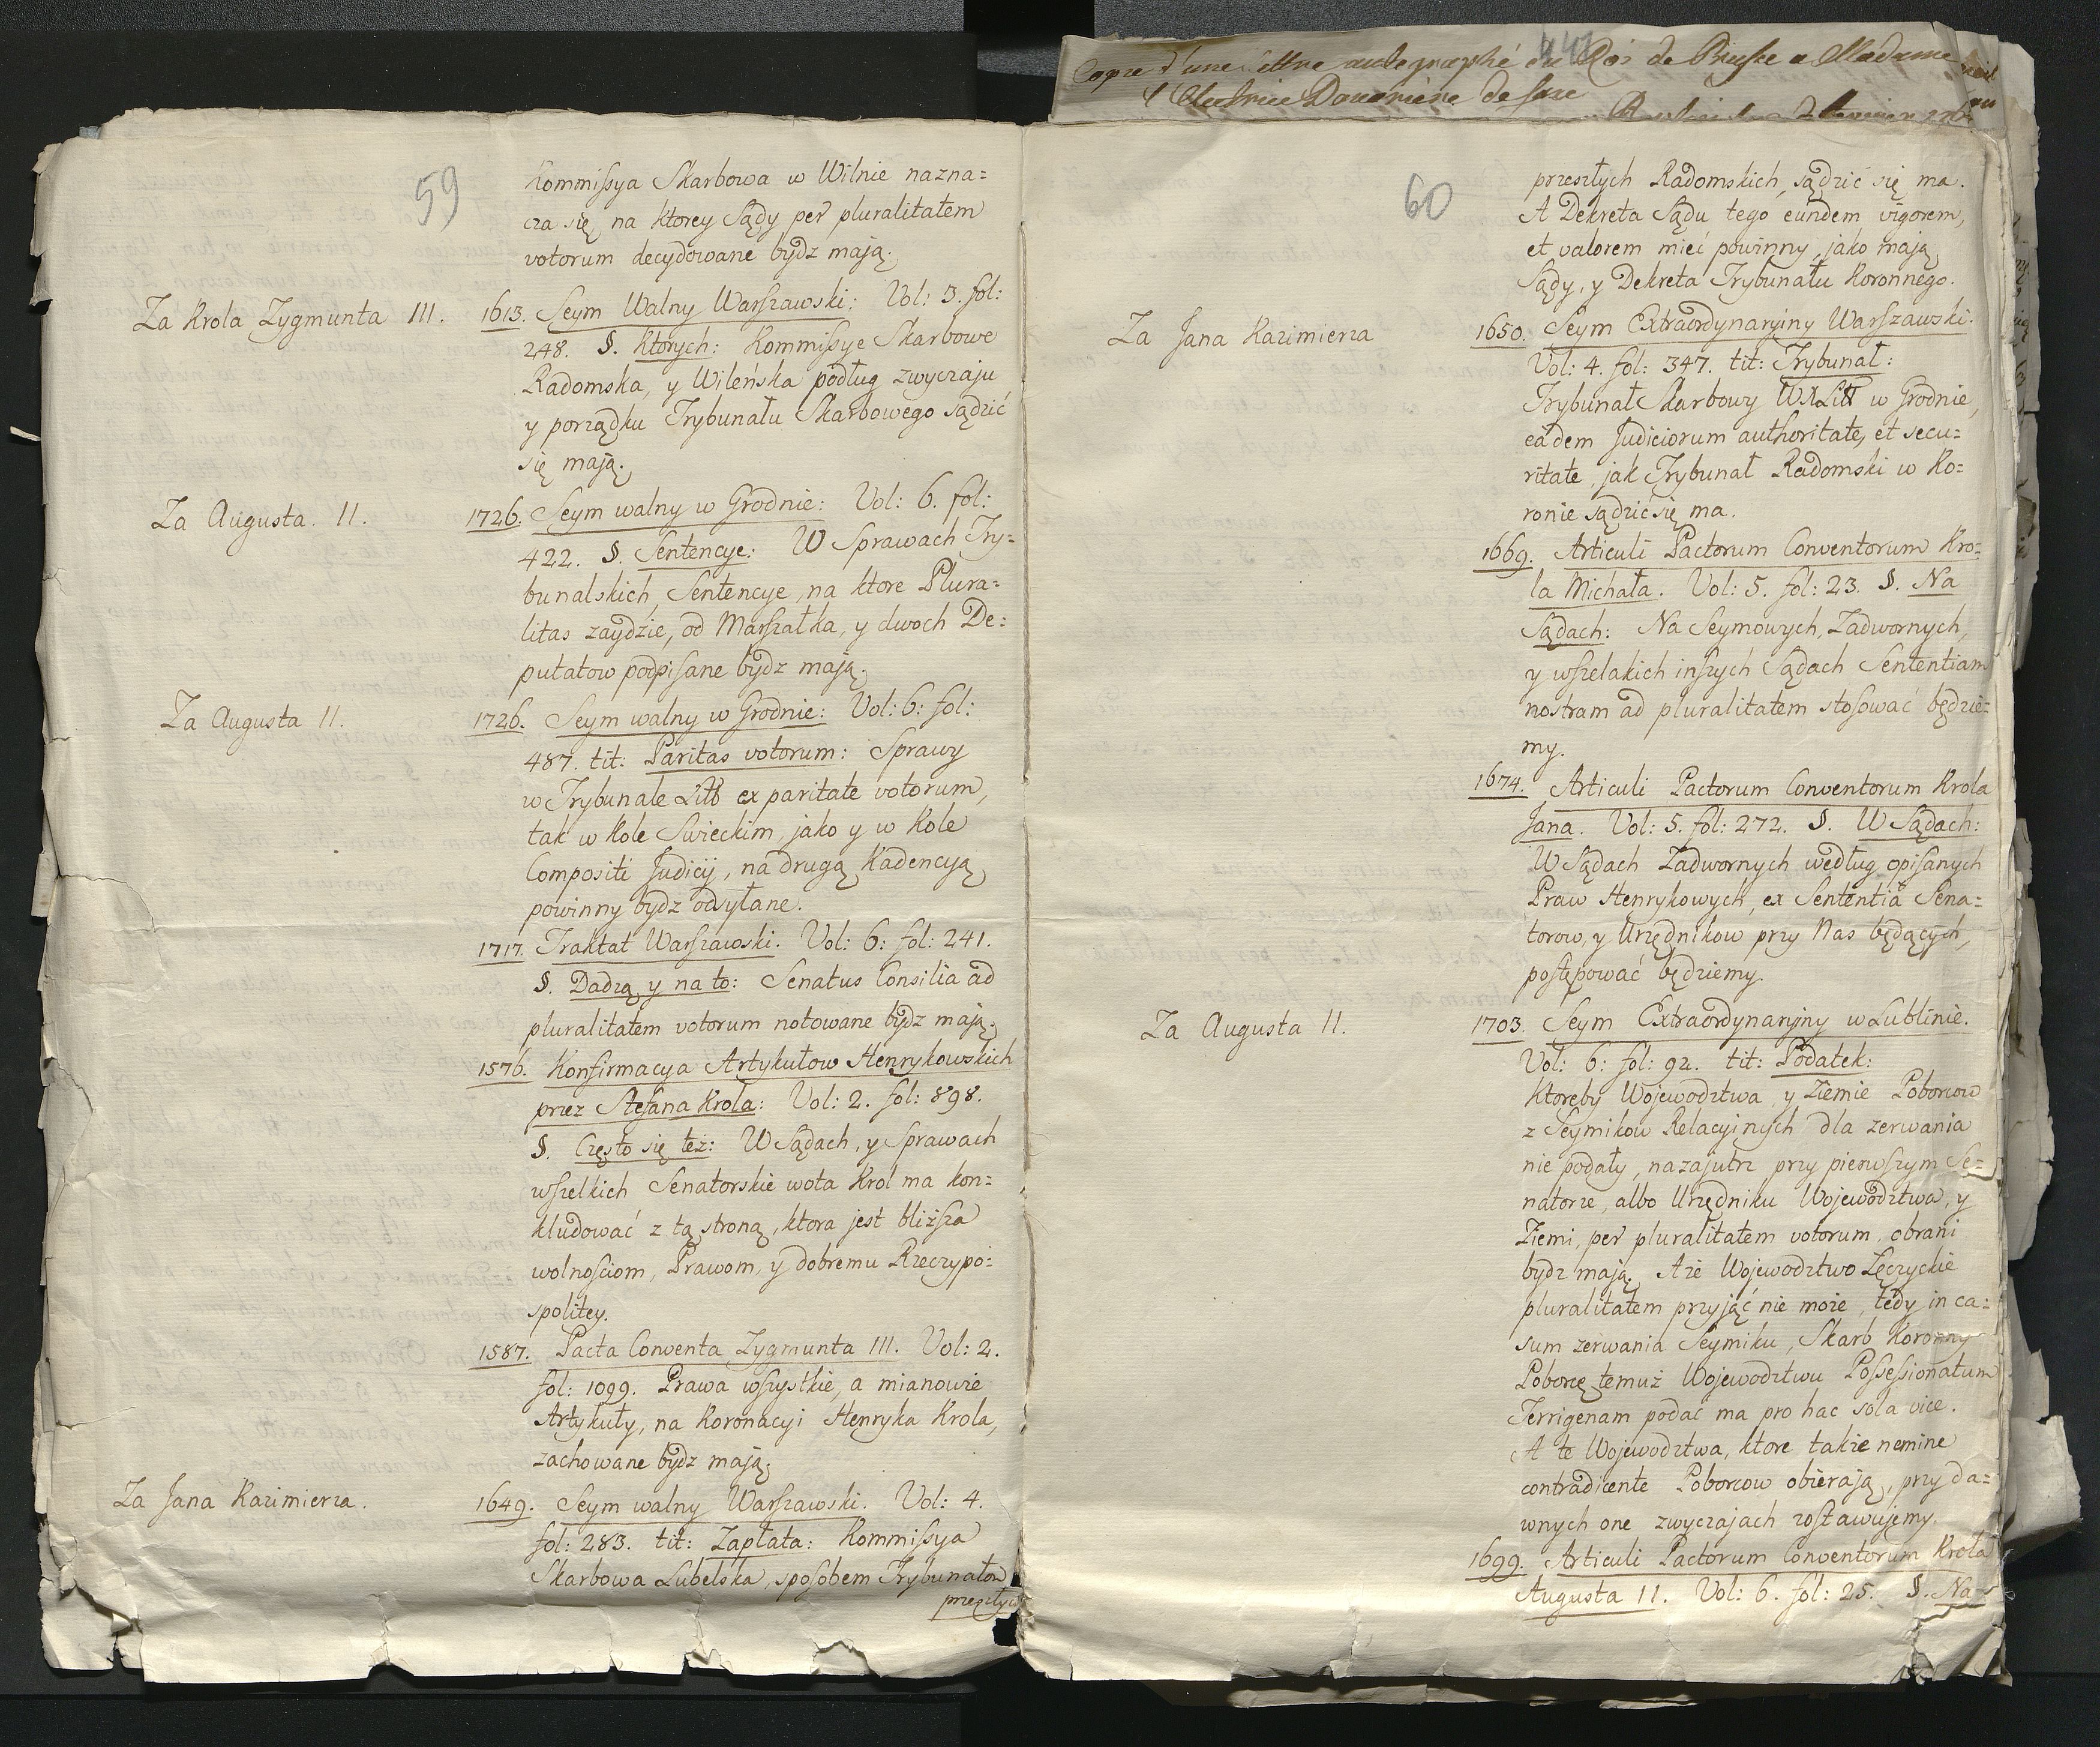 59
Kommissya Skarbowa w Wilnie nazna=
cza się, na ktorey Sądy per pluralitatem
votorum decydowane bydz mają.
Za Krola Zygmunta III.
1613. Seym Walny Warszawski: Vol: 3. fol:
248. §. Ktorych: Kommissye Skarbowe
Radomska, y Wileńska podług zwyczaju
y porządku Trybunału Skarbowego sądzić
się mają.
Za Augusta. II.
1726. Seym walny w Grodnie: Vol: 6. fol:
422. §. Sentencye: W Sprawach Try=
bunalskich, Sentencye, na ktore Plura=
litas zaydzie, od Marszałka, y dwoch De=
putatow podpisane bydz mają.
Za Augusta II.
1726. Seym walny w Grodnie: Vol: 6: fol:
487. tit: Paritas votorum: Sprawy
w Trybunale Litt ex paritate votorum,
tak w Kole Swieckim, jako y w Kole
Compositi Judicij, na drugą Kadencyą
powinny bydz odsyłane.
1717. Traktat Warszawski. Vol: 6: fol: 241.
§. Dadzą y na to: Senatus Consilia ad
pluralitatem votorum notowane bydz mają.
1576. Konfirmacya Artykułow Henrykowskich
przez Stefana Krola: Vol: 2. fol: 898.
§. Często się też: W Sądach, y Sprawach
wszelkich Senatorskie wota Krol ma kon=
kludować z tą stroną, ktora jest bliższa
wolnosciom, Prawom, y dobremu Rzeczypo=
spolitey.
1587. Pacta Conventa Zygmunta III. Vol: 2.
fol: 1099. Prawa wszystkie, a mianowie
Artykuły, na Koronacyi Henryka Krola,
zachowane bydz mają.
Za Jana Kazimierza.
1649. Seym walny Warszawski. Vol: 4.
fol: 283. tit: Zapłata: Kommissya
Skarbowa Lubelska, sposobem Trybunałow
przeszłyc
Copie d'une lettre autographé du Roi de Prusse a Madame
l'Electrice Douariere de Saxe
60
przeszłych Radomskich, sądzić się ma.
A Dekreta Sądu tego eundem vigorem,
et valorem mieć powinny, jako mają
Sądy, y Dekreta Trybunału Koronnego.
Za Jana Kazimierza
1650. Seym Extraordynaryiny Warszawski.
Vol: 4. fol: 347. tit: Trybunał:
Trybunał Skarbowy WXLitt w Grodnie,
eadem Judiciorum authoritate, et secu=
ritate, jak Trybunał Radomski w Ko=
ronie sądzić się ma.
1669. Articuli Pactorum Conventorum Kro=
la Michała. Vol: 5. fol: 23. §. Na
Sądach: Na Seymowych, Zadwornych,
y wszelakich inszych Sądach Sententiam
nostram ad pluralitatem stosować będzie=
my.
1674. Articuli Pactorum Conventorum Krola
Jana. Vol: 5. fol: 272. §. W Sądach:
W Sądach Zadwornych według opisanych
Praw Henrykowych, ex Sententia Sena=
torow, y Urzędnikow przy Nas będących,
postępować będziemy.
Za Augusta II.
1703. Seym Extraordynaryjny w Lublinie.
Vol: 6: fol: 92. tit: Podatek:
Ktoreby Wojewodztwa, y Ziemie Poborcow
z Seymikow Relacyinych dla zerwania
nie podały, nazajutrz przy pierwszym Se=
natorze, albo Urzędniku Wojewodztwa, y
Ziemi, per pluralitatem votorum, obrani
bydz mają. A że Wojewodztwo Łęczyckie
pluralitatem przyjąć nie może, tedy in ca=
sum zerwania Seymiku, Skarb Koronny
Poborcę temuż Wojewodztwu Possessionatum
Terrigenam podać ma pro hac sola vice.
A te Wojewodztwa, ktore takze nemine
contradicente Poborcow obierają, przy da=
wnych one zwyczajach zostawujemy.
1699. Articuli Pactorum Conventorum Krola
Augusta II. Vol: 6. fol: 25. §. Na